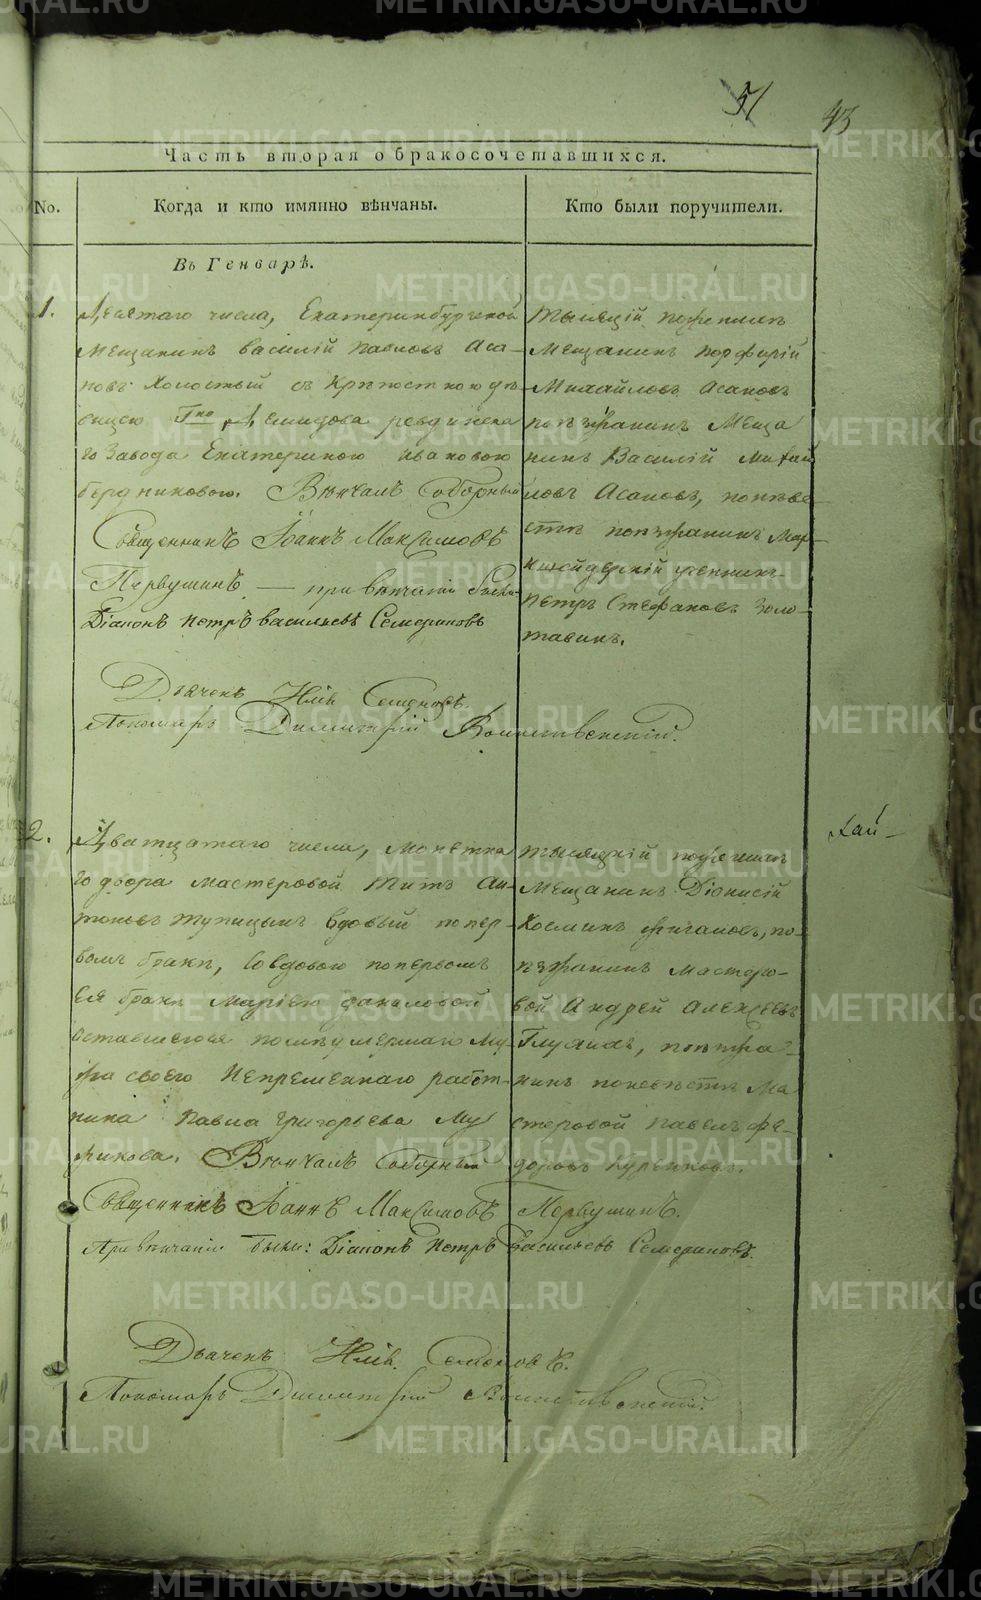 51
43
Часть вторая о бракосочетавшихся.
No.
Когда и кто имянно вѣнчаны.
Кто были поручители.
Въ Генварѣ.
1.
Девятаго числа, Екатеринбургской
мещанинъ Василій Павловъ Аса-
новъ холостый съ крѣпостною дѣ-
вицею Гна Демидова ревдинска
го завода Екатериною Ивановою
бердниковою. Вѣнчалъ Соборный
Священникъ Іоаннъ Максимовъ
Первушинъ. — при вѣнчаніи были
Діаконъ Петръ Васильевъ Семериковъ
Дьячекъ Семеновъ.
Пономарь Димитрій Воинственскій.
Тысяцкій
мещанинъ Порфирій
Михайловъ Асановъ
поѣзжанинъ Меща
нинъ Василій Михай
ловъ Асановъ, по невѣ
стѣ поѣзжанинъ Мар-
шейдерскій ученикъ
Петръ Стефановъ Золо-
тавинъ.
2.
Дватцатаго числа, монетна
го двора мастеровой Титъ Ан-
тоновъ Тупицынъ вдовый по пер-
вомъ бракѣ, со вдовою по первомъ
ея бракѣ Маріею Даниловой
оставшеюся после умершаго му-
жа своего непременнаго работ-
ника Павла Григорьева Му
рикова. Вѣнчалъ Соборный
Священникъ Іоаннъ Максимовъ Первушинъ.
При вѣнчаніи были: Діаконъ Петръ Васильевъ Семериковъ.
Дьячекъ Семеновъ.
Пономарь Димитрій Воинственскій.
Тысяцкій
Мещанинъ Діонисій
Космин Жигановъ, по-
ѣзжанинъ мастеро-
вой Андрей Алексѣевъ
поѣзжа-
нинъ по невѣстѣ Ма
стеровой Павелъ Фе-
доровъ
METRIKI.GASO-URAL.RU